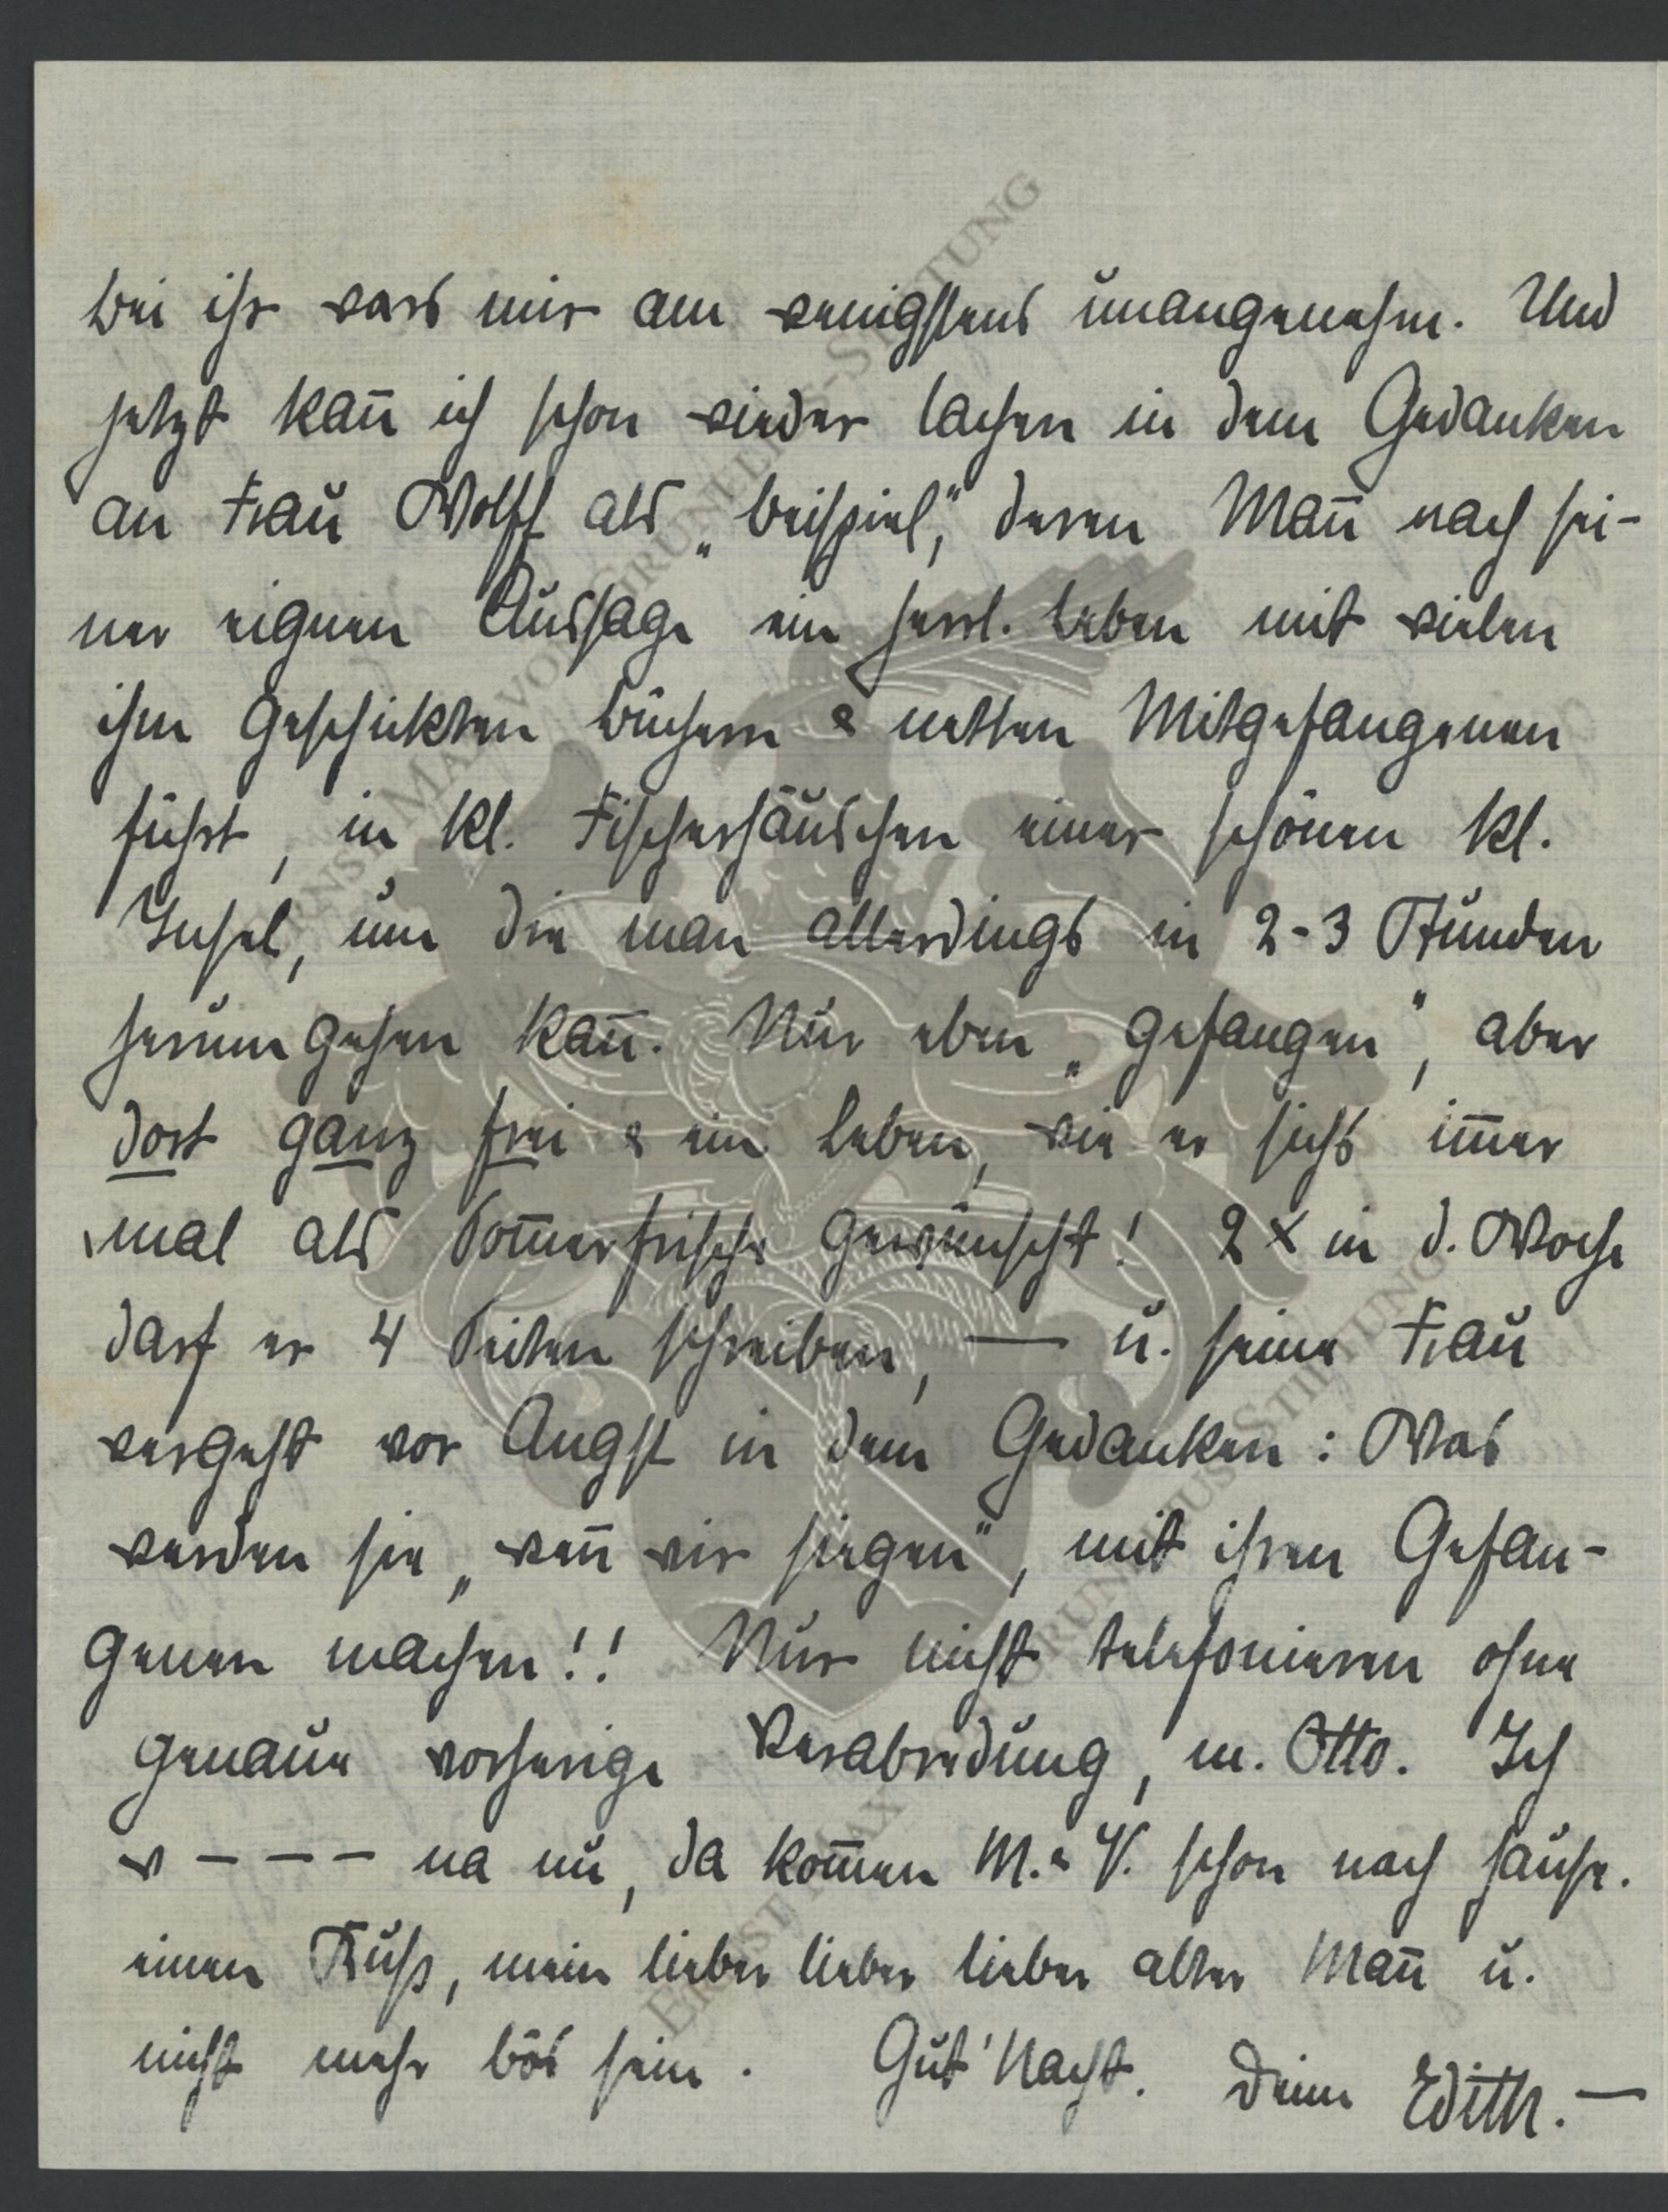 bei ihr wars mir am wenigstens unangenehm. Und
jetzt kan̄ ich schon wieder lachen in dem Gedanken
an Frau Wolff als „beispiel", deren Man̄ nach sei-
ner eignen Aussage ein herrl. leben mit vielen
ihm geschickten büchern & netten Mitgefangenen
führt, in kl. Fischerhäuschen einer schönen kl.
Insel, um die man allerdings in 2-3 Stunden
herumgehen kan̄. Nur eben „gefangen", aber
dort ganz frei & ein Leben, wie er sichs im̄er
mal als Som̄erfrische gewünscht! 2 x in d. Woche
darf er 4 Seiten schreiben, — u. seine Frau
vergeht vor Angst in dem Gedanken: Was
werden sie „wen̄ wir siegen", mit ihren Gefan-
genen machen!! Nur nicht telefonieren ohne
genaue vorherige Verabredung, m. Otto. Ich
w - - - na nu, da kom̄en M. & V. schon nach hause.
einen Kuss, mein lieber lieber lieber alter Man̄ u.
nicht mehr bös sein. Gut' Nacht. Deine Edith. —
ERNST MAX VON GRUNELIUS-STIFTUNG
ERNST MAX VON GRUNELIUS-STIFTUNG